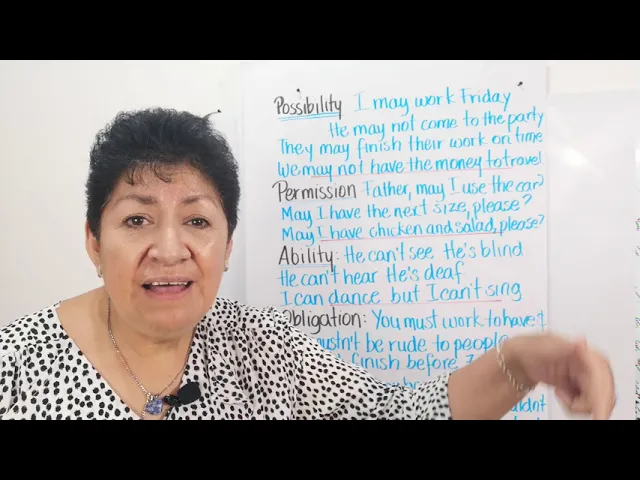 Possibility I may work Friday
He may not come to the party
They may finish their work on time
We may not have the money to travel
Permission Father, may I use the car?
May I have the next size, please?
May I have chicken and salad, please?
Ability: He can't see He's blind
He can't hear He's deaf
I can dance but I can't sing
Obligation: You must work to have
be rude to people
finish before 7